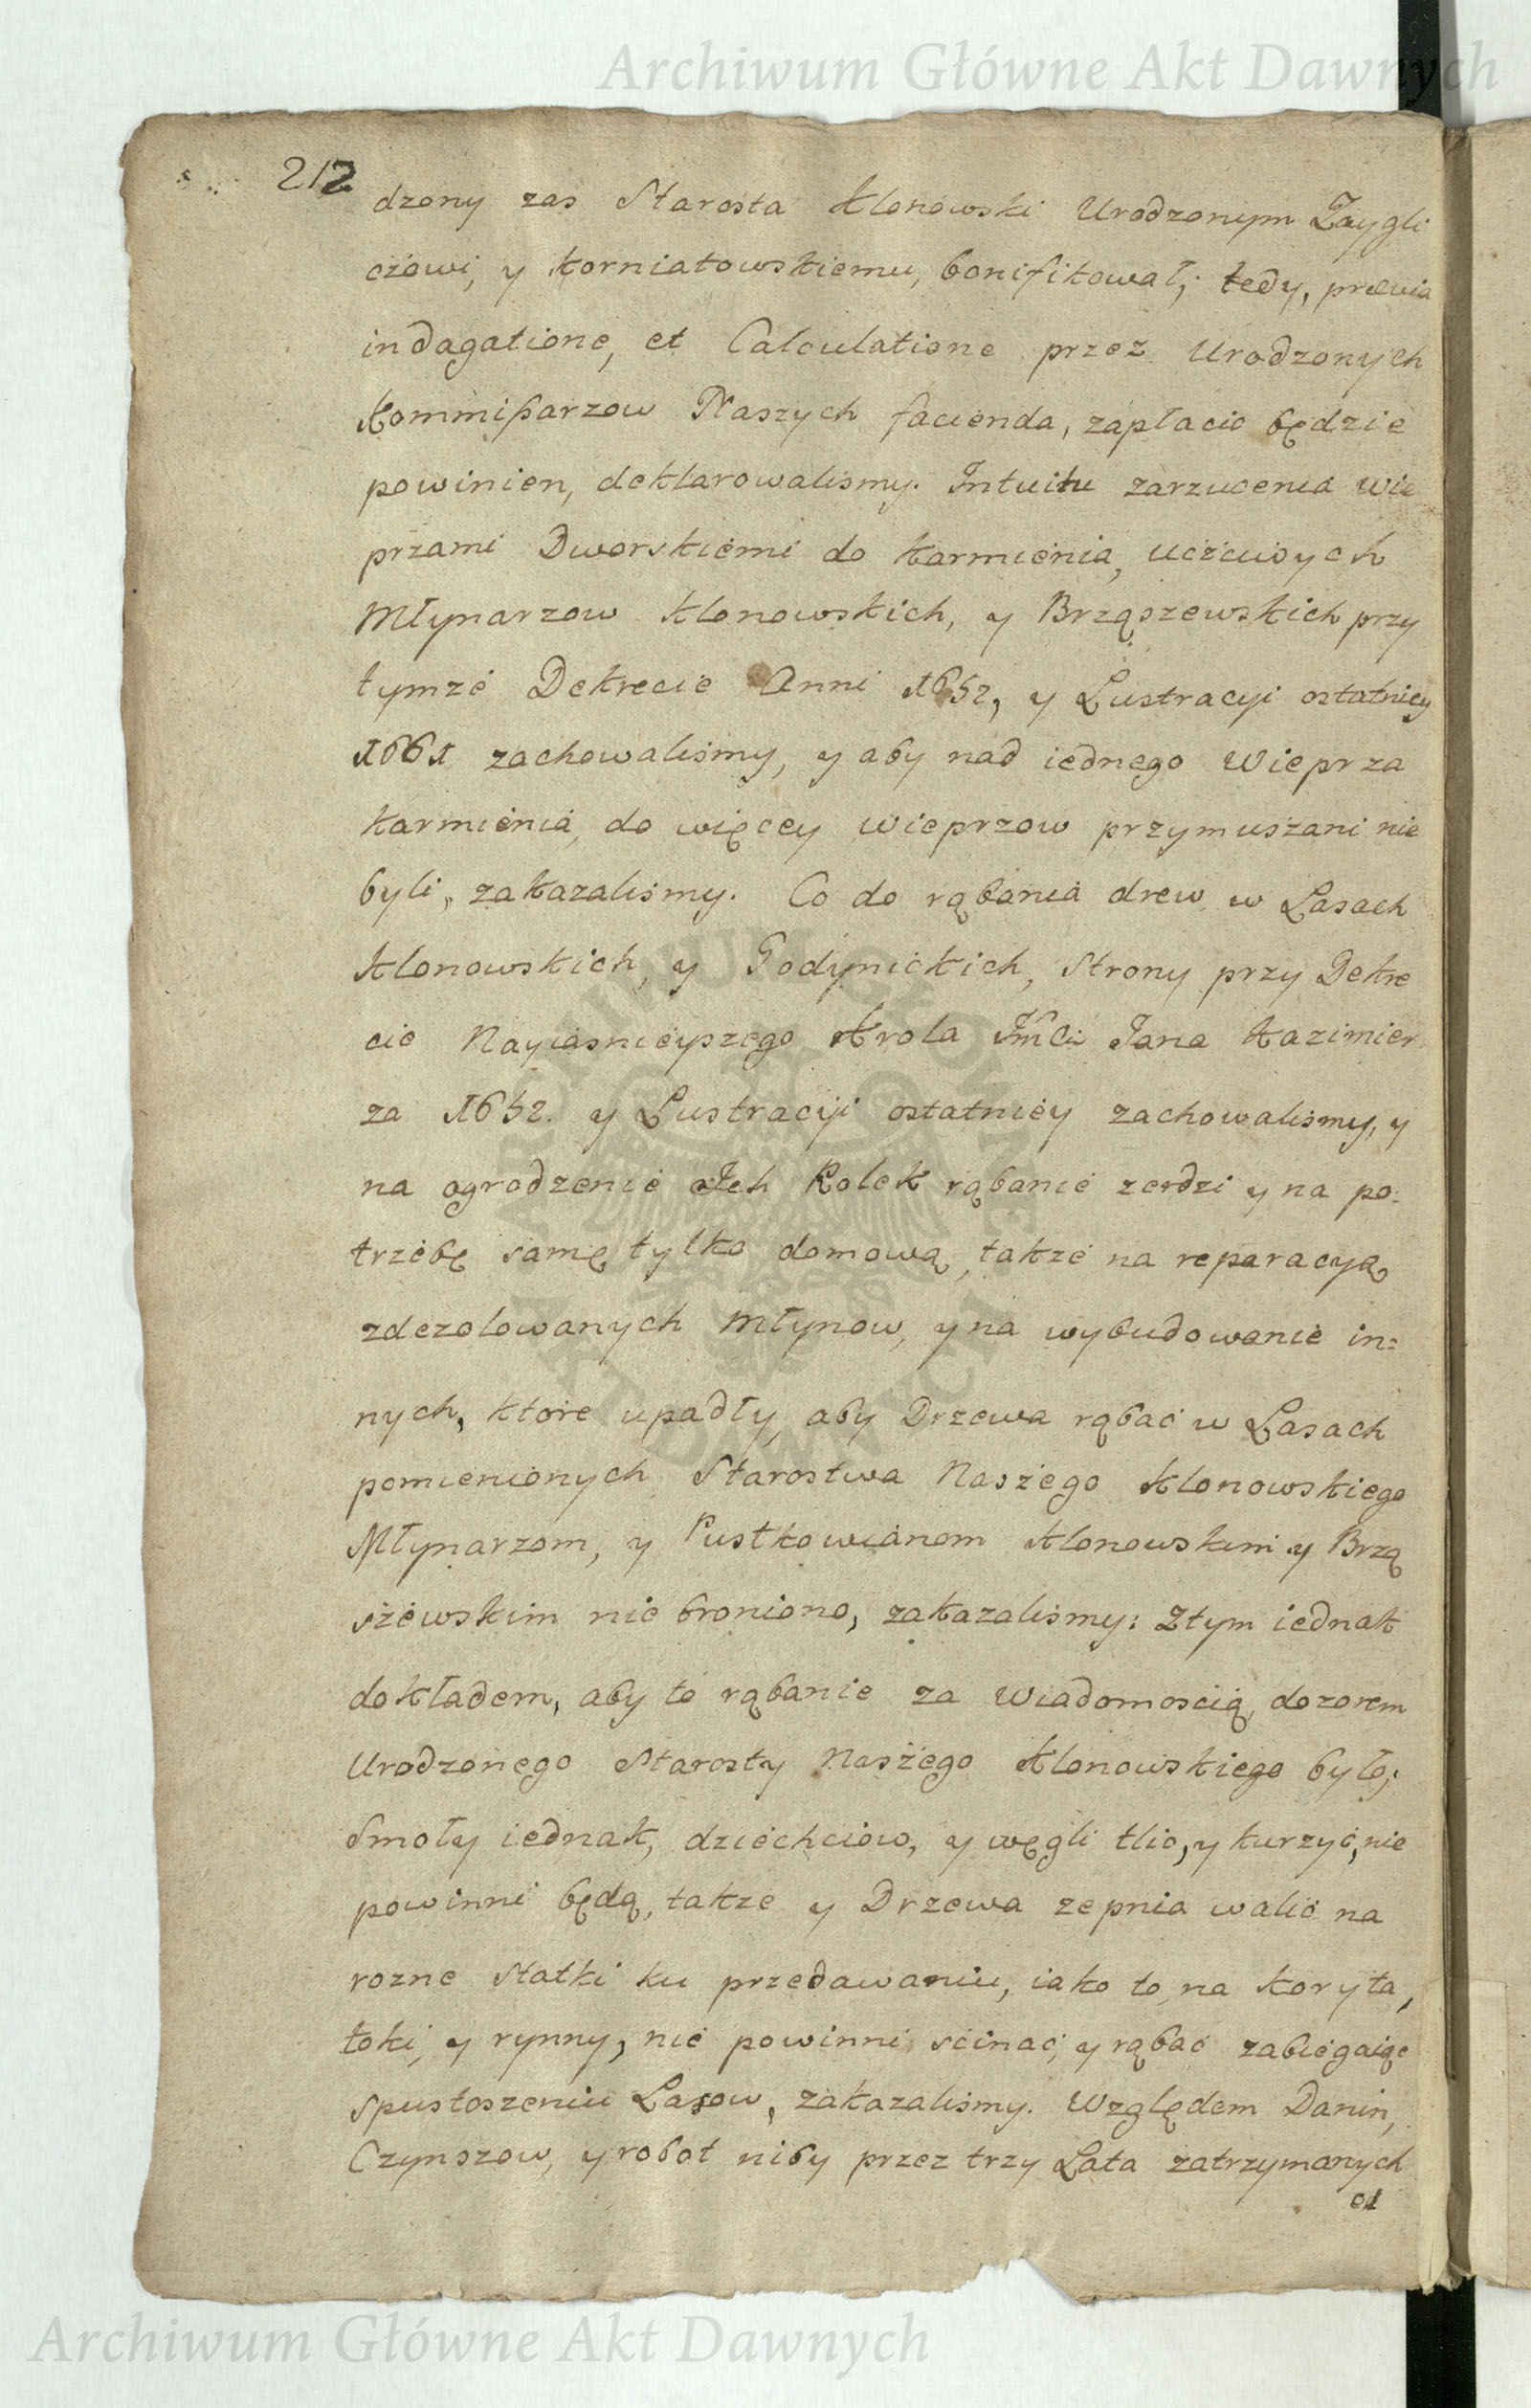 Archiwum Główne Akt Dawnych
212
dzony zas Starosta Klonowski Urodzonym Zaygli
czowi, y Korniatowskiemu, bonifikował; tedy, prævia
indagatione, et Calculatione przez Urodzonych
Kommißarzow Naszych facienda, zapłacic będzie
powinien, deklarowalismy. Intuitu zarzucenia wie
przami Dworskiemi do karmienia, uczciwych
Młynarzow Klonowskich, y Brząszewskich przy
tymze Dekrecie Anni 1652, y Lustracyi ostatniey
1661 zachowalismy, y aby nad iednego Wieprza
karmienia, do więcey wieprzow przymuszani nie
byli, zakazalismy. Co do rąbania drew w Lasach
Klonowskich, y Godynickich, Strony przy Dekre
cie Nayiasnieyszego Krola Jmci Jana Kazimier
za 1652. y Lustracyi ostatniey zachowalismy, y
na ogrodzenie Ich Rolek rąbanie zerdzi y na po:
trzebę samę tylko domową, takze na reparacyą
zdezolowanych Młynow, y na wybudowanie in:
nych, ktore upadły, aby Drzewa rąbac w Lasach
pomienionych Starostwa Naszego Klonowskiego
Młynarzom, y Pustkowianom Klonowskim y Brzą
szewskim nie broniono, zakazalismy: Ztym iednak
dokładem, aby to rąbanie za wiadomoscią, dozorem
Urodzonego Starosty Naszego Klonowskiego było;
Smoły iednak, dziechciow, y węgli tlic, y kurzyc, nie
powinni będą, takze y Drzewa zepnia walic na
rozne statki ku przedawaniu, iako to, na koryta,
toki, y rynny, nie powinni scinac, y rąbac zabiegaiąc
Spustoszeniu Lasow, zakazalismy. Względem Danin,
Czynszow, y robot niby przez trzy Lata zatrzymanych
od
Archiwum Główne Akt Dawnych